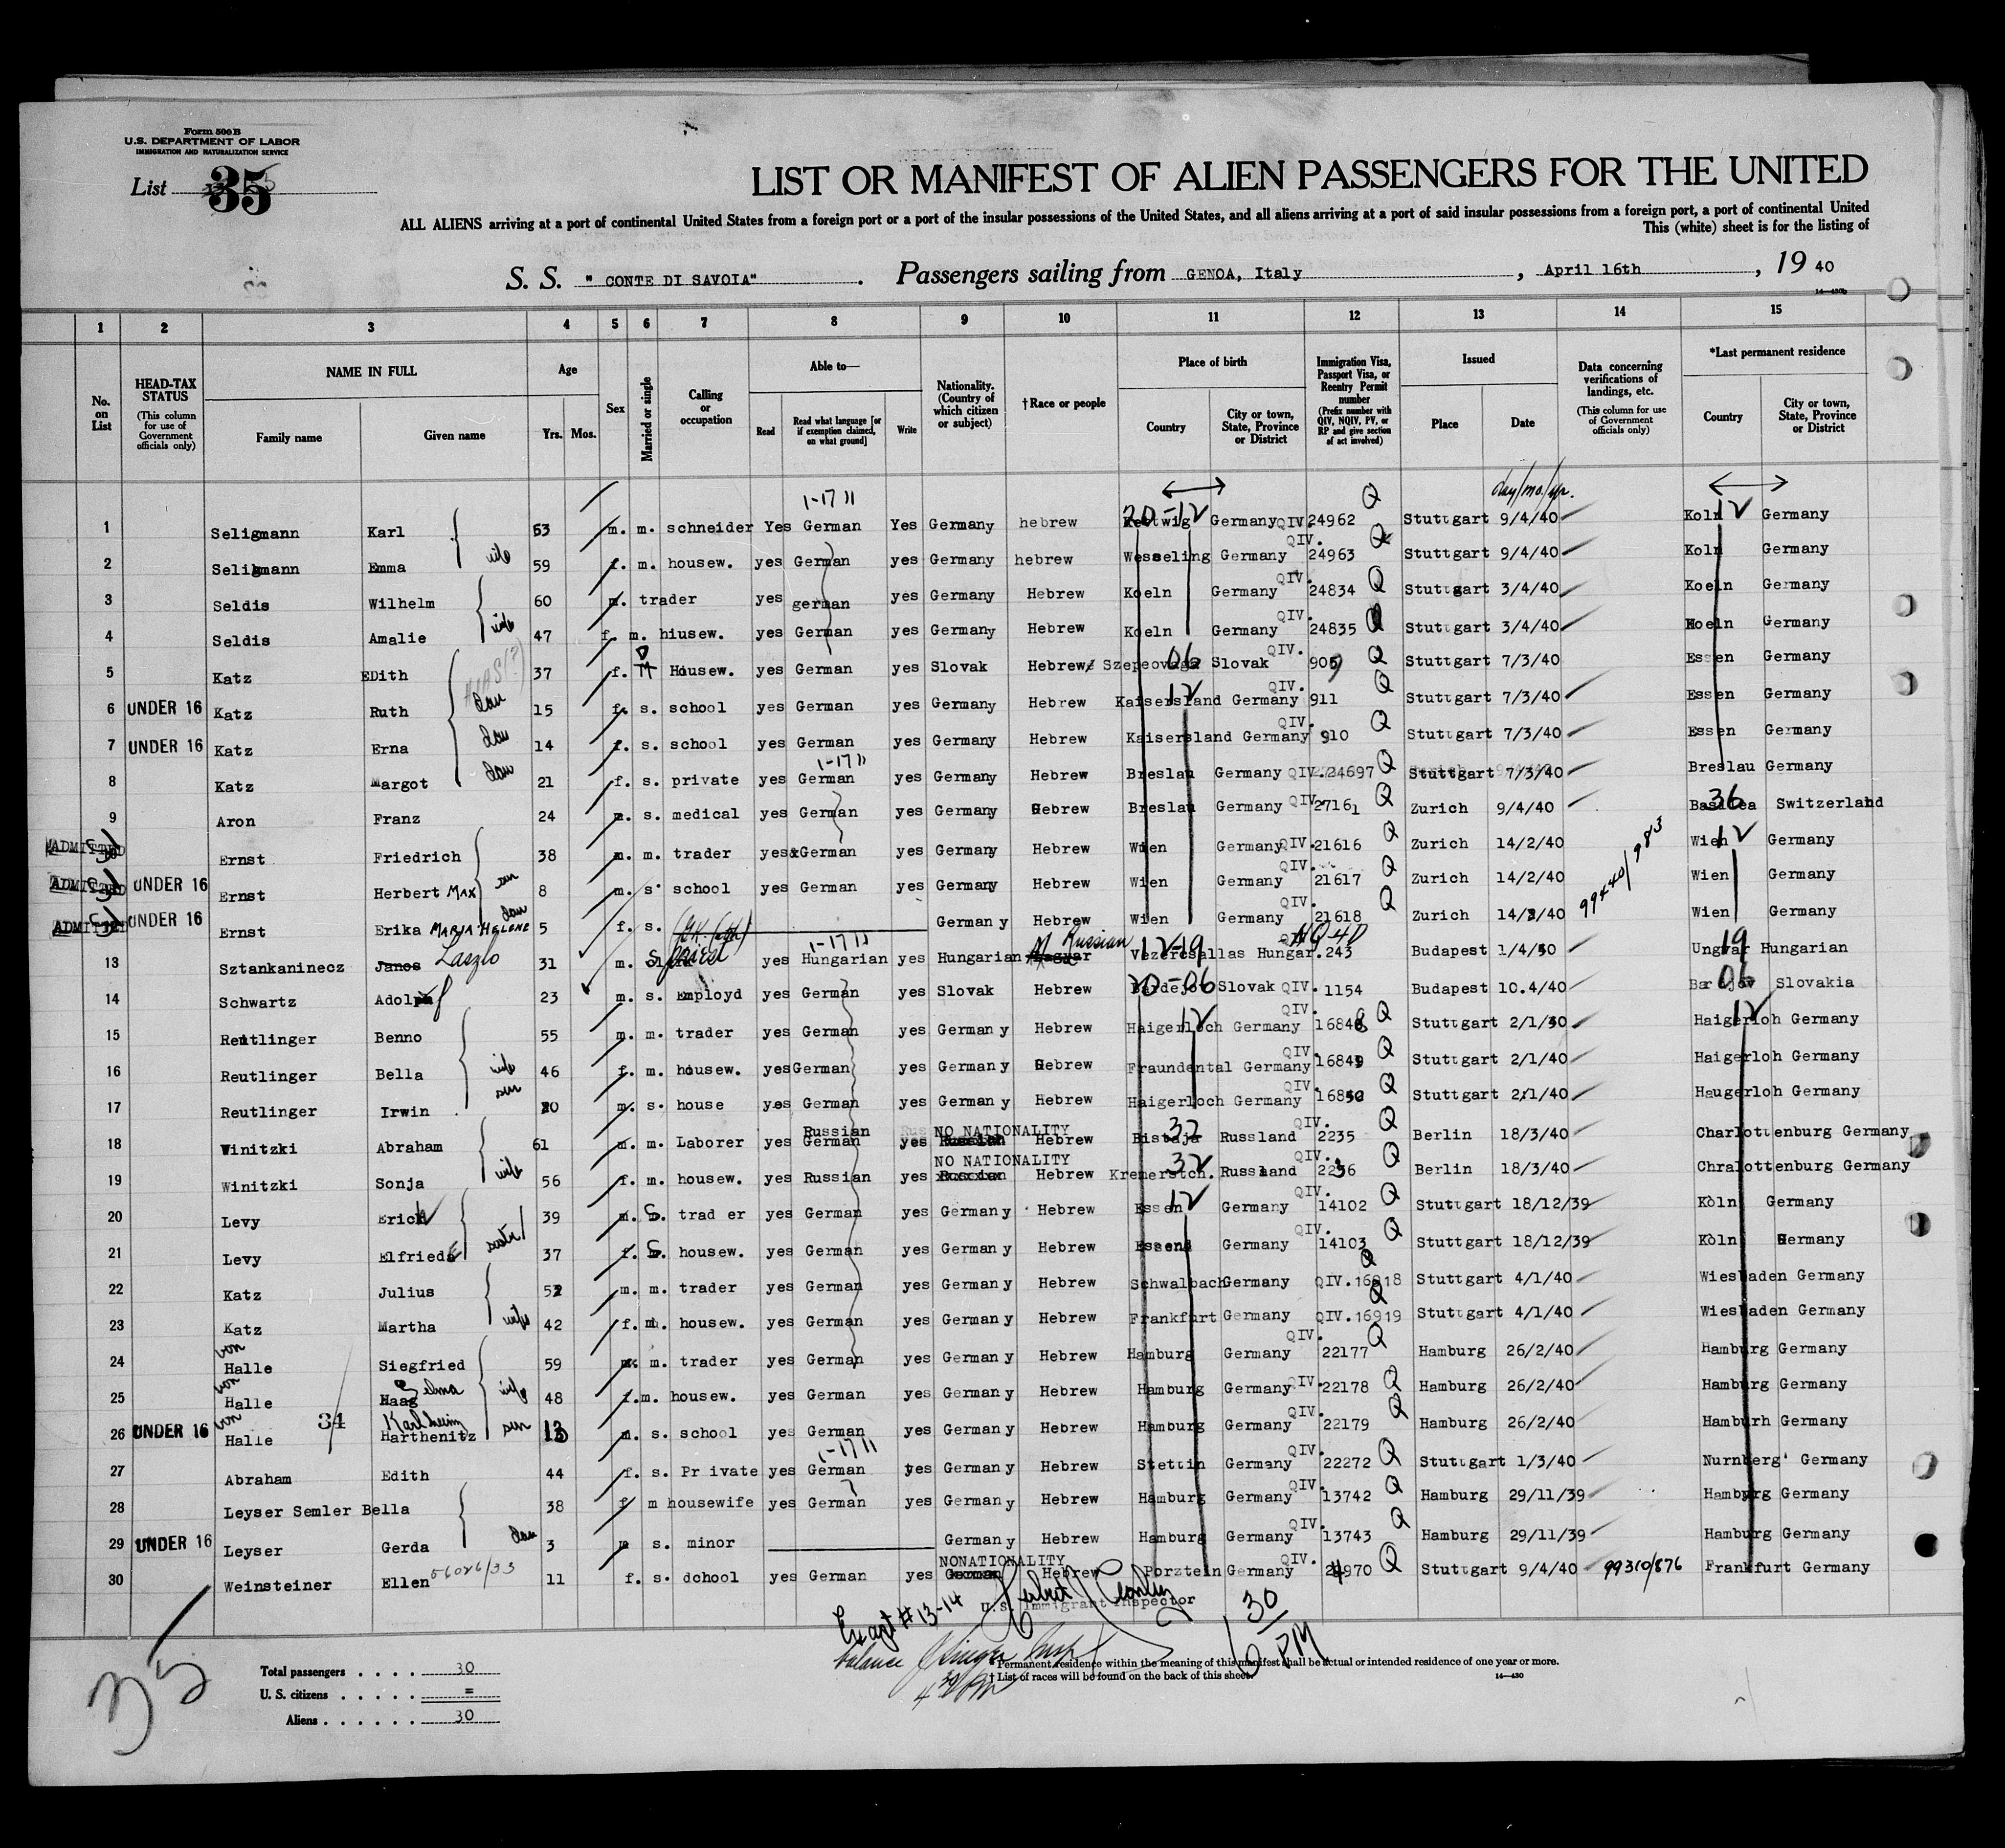 Form 500 B
U.S. DEPARTMENT OF LABOR
IMMIGRATION AND NATURALIZATION SERVICE
List 35
LIST OR MANIFEST OF ALIEN PASSENGERS FOR THE UNITED
ALL ALIENS arriving at a port of continental United States from a foreign port or a port of the insular possessions of the United States, and all aliens arriving at a port of said insular possessions from a foreign port, a port of continental United
This (white) sheet is for the listing of
S. S. " CONTE DI SAVOIA" . Passengers sailing from GENOA, Italy , April 16th , 19 40
14—430b
1 2 3 4 5 6 7 8 9 10 11 12 13 14 15
No. on List
HEAD-TAX STATUS (This column for use of Government officials only)
NAME IN FULL Family name Given name
Age Yrs. Mos.
Sex
Married or single
Calling or occupation
Able to— Read Read what language [or if exemption claimed, on what ground] Write
Nationality. (Country of which citizen or subject)
†Race or people
Place of birth Country City or town, State, Province or District
Immigration Visa, Passport Visa, or Reentry Permit number (Prefix number with QIV, NQIV, PV, or RP and give section of act involved)
Issued Place Date
Data concerning verifications of landings, etc. (This column for use of Government officials only)
*Last permanent residence Country City or town, State, Province or District
day/mo/yr.
1-17 11
1 Seligmann Karl 53 m. m. schneider Yes German Yes Germany hebrew Kettwig Germany QIV. 24962 Q Stuttgart 9/4/40 Koln Germany
2 Seligmann Emma wife 59 f. m. housew. yes German yes Germany hebrew Wesseling Germany QIV. 24963 Q Stuttgart 9/4/40 Koln Germany
3 Seldis Wilhelm 60 m. trader yes german yes Germany Hebrew Koeln Germany QIV. 24834 Q Stuttgart 3/4/40 Koeln Germany
4 Seldis Amalie wife 47 f. m. hiusew. yes German yes Germany Hebrew Koeln Germany QIV. 24835 Q Stuttgart 3/4/40 Koeln Germany
5 Katz EDith 37 f. D Housew. yes German yes Slovak Hebrew Slovak QIV. 909 Q Stuttgart 7/3/40 Essen Germany
6 UNDER 16 Katz Ruth dau 15 f. s. school yes German yes Germany Hebrew Kaisersland Germany QIV. 911 Q Stuttgart 7/3/40 Essen Germany
7 UNDER 16 Katz Erna dau 14 f. s. school yes German yes Germany Hebrew Kaisersland Germany QIV. 910 Q Stuttgart 7/3/40 Essen Germany
1-17 11
8 Katz Margot dau 21 f. s. private yes German yes Germany Hebrew Breslau Germany QIV. 24697 Q Stuttgart 7/3/40 Breslau Germany
9 Aron Franz 24 m. s. medical yes German yes Germany Hebrew Breslau Germany QIV 27161 Q Zurich 9/4/40 36 Switzerland
ADMITTED Ernst Friedrich 38 m. m. trader yes German yes Germany Hebrew Wien Germany QIV. 21616 Q Zurich 14/2/40 Wien Germany
ADMITTED UNDER 16 Ernst Herbert MAX son 8 m. s. school yes German yes Germany Hebrew Wien Germany QIV. 21617 Q Zurich 14/2/40 99440/983 Wien Germany
ADMITTED UNDER 16 Ernst Erika MARIA-HELENE dau 5 f. s. Germany Hebrew Wien Germany QIV. 21618 Q Zurich 14/2/40 Wien Germany
13 Sztankaninecz Janos Laszlo 31 m. S priest yes 1-17 11 Hungarian yes Hungarian Magyar Russian Vezercsallas Hungar. NQ-4D 243 Budapest 1/4/40 19 Hungarian
14 Schwartz Adolf 23 m. s. Employd yes German yes Slovak Hebrew 20-06 Slovak QIV. 1154 Budapest 10.4/40 06 Slovakia
15 Reutlinger Benno 55 m. m. trader yes German yes Germany Hebrew Haigerloch Germany QIV. 16848 Q Stuttgart 2/1/40 Haigerloh Germany
16 Reutlinger Bella wife 46 f. m. housew. yes German yes Germany Hebrew Fraundental Germany QIV. 16849 Q Stuttgart 2/1/40 Haigerloh Germany
17 Reutlinger Irwin son 20 m. s. house yes German yes Germany Hebrew Haigerloch Germany QIV. 16850 Q Stuttgart 2/1/40 Haugerloh Germany
18 Winitzki Abraham 61 m. m. Laborer yes Russian German yes NO NATIONALITY Russian Hebrew 32 Russland QIV. 2235 Q Berlin 18/3/40 Charlottenburg Germany
19 Winitzki Sonja wife 56 f. m. housew. yes Russian yes NO NATIONALITY Hebrew Kremerstch. Russland QIV. 2236 Q Berlin 18/3/40 Chralottenburg Germany
20 Levy Erich 39 m. S. trader yes German yes Germany Hebrew Essen Germany QIV. 14102 Q Stuttgart 18/12/39 Köln Germany
21 Levy Elfriede sister 37 f. S. housew. yes German yes Germany Hebrew Essen Germany QIV. 14103 Q Stuttgart 18/12/39 Köln Germany
22 Katz Julius 52 m. m. trader yes German yes Germany Hebrew Schwalbach Germany QIV. 16918 Q Stuttgart 4/1/40 Wiesbaden Germany
23 Katz Martha wife 42 f. m. housew. yes German yes Germany Hebrew Frankfurt Germany QIV. 16919 Q Stuttgart 4/1/40 Wiesbaden Germany
24 von Halle Siegfried 59 m. m. trader yes German yes Germany Hebrew Hamburg Germany QIV. 22177 Q Hamburg 26/2/40 Hamburg Germany
25 von Halle Haag Selma wife 48 f. m. housew. yes German yes Germany Hebrew Hamburg Germany QIV. 22178 Q Hamburg 26/2/40 Hamburg Germany
26 UNDER 16 von Halle 34 Karlheinz Harthenitz son 13 m. s. school yes German yes Germany Hebrew Hamburg Germany QIV. 22179 Q Hamburg 26/2/40 Hamburh Germany
1-17 11
27 Abraham Edith 44 f. s. Private yes German yes Germany Hebrew Stettin Germany QIV. 22272 Q Stuttgart 1/3/40 Nurnberg Germany
28 Leyser Semler Bella 38 f m housewife yes German yes Germany Hebrew Hamburg Germany QIV. 13742 Q Hamburg 29/11/39 Hamburg Germany
29 UNDER 16 Leyser Gerda dau 3 s. minor Germany Hebrew Hamburg Germany QIV. 13743 Q Hamburg 29/11/39 Hamburg Germany
30 Weinsteiner Ellen 56026/33 11 f. s. dchool yes German yes NONATIONALITY German Hebrew Porztein Germany QIV. 24970 Q Stuttgart 9/4/40 99310/876 Frankfurt Germany
U.S. Immigrant Inspector
Except #13-14
balance
6 30 PM
4 30 PM
35
Total passengers . . . . 30
U. S. citizens . . . . . =
Aliens . . . . . . 30
* Permanent residence within the meaning of this manifest shall be actual or intended residence of one year or more.
† List of races will be found on the back of this sheet.
14—430